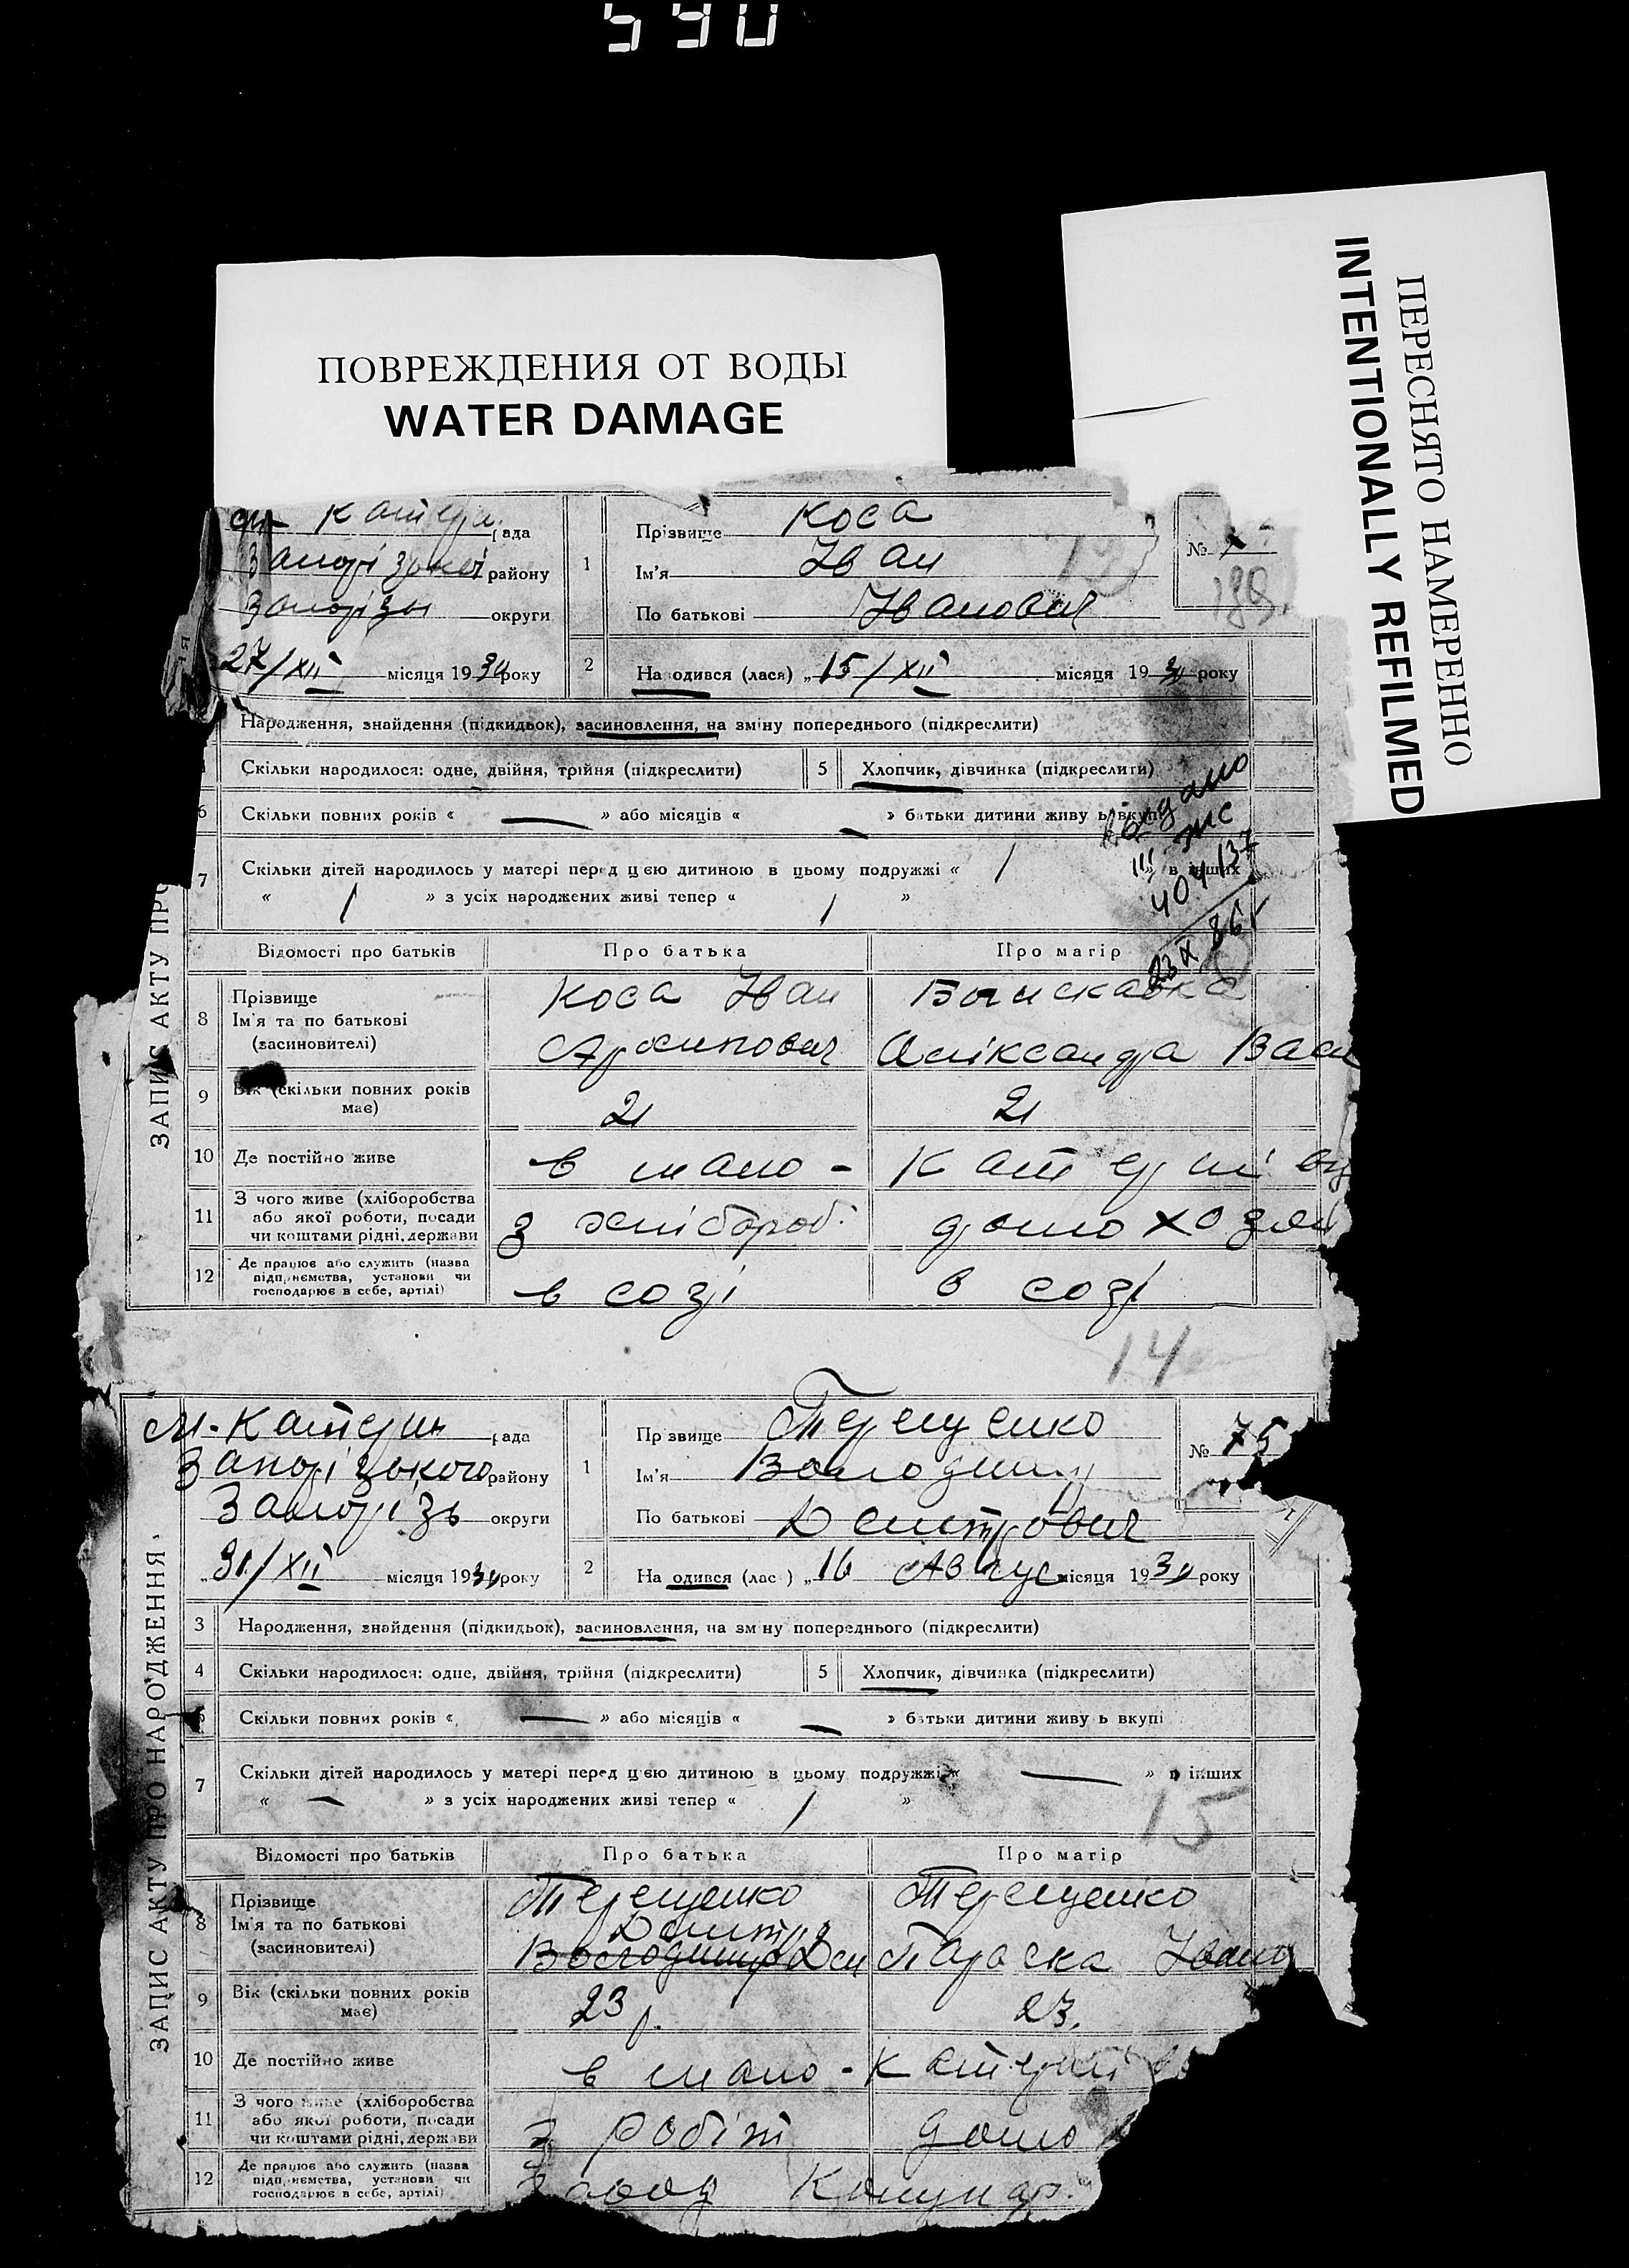 590
ПОВРЕЖДЕНИЯ ОТ ВОДЫ
WATER DAMAGE
ПЕРЕСНЯТО НАМЕРЕННО
INTENTIONALLY REFILMED
ЗАПИС АКТУ ПРО
рада
району
округи
27/XII місяця 1930 року
1 Прізвище Коса
Ім'я Іван
По батькові Іванович
№
189
2 Народився (лася) „15/XII місяця 19 року
Народження, знайдення (підкидьок), засиновлення, на зміну попереднього (підкреслити)
Скільки народилося: одне, двійня, трійня (підкреслити)
5 Хлопчик, дівчинка (підкреслити)
6 Скільки повних років « — » або місяців « — » батьки дитини живуть вкупі
7 Скільки дітей народилось у матері перед цією дитиною в цьому подружжі « / » в інших
« / » з усіх народжених живі тепер « / »
Відомості про батьків Про батька Про матір
8 Прізвище
Ім'я та по батькові
(засиновителі)
Коса Іван
Архипович
Олікксандра Васи
9 Вік (скільки повних років має)
21
21
10 Де постійно живе
в мало - Катерині
11 З чого живе (хліборобства або якої роботи, посади чи коштами рідні, держави
з хлібороб.
домохозяй
12 Де працює або служить (назва підприємства, установи чи господарює в себе, артілі)
в созі
в созі
14
ЗАПИС АКТУ ПРО НАРОДЖЕННЯ.
М-Катерин рада
Запорізького району
Запорізь округи
„31/XII місяця 1930 року
1 Прізвище Терещенко
Ім'я Володимир
По батькові Дмитрович
№ 75
2 Народився (лась) „16 Август місяця 1930 року
3 Народження, знайдення (підкидьок), засиновлення, на зміну попереднього (підкреслити)
4 Скільки народилося: одне, двійня, трійня (підкреслити)
5 Хлопчик, дівчинка (підкреслити)
Скільки повних років « — » або місяців « — » батьки дитини живуть вкупі
7 Скільки дітей народилось у матері перед цією дитиною в цьому подружжі « — » в інших
« — » з усіх народжених живі тепер « / »
15
Відомості про батьків Про батька Про матір
8 Прізвище
Ім'я та по батькові
(засиновителі)
Терещенко
Дмитро
Володимир Дм
Терещенко
Параска Івано
9 Вік (скільки повних років має)
23 р.
23.
10 Де постійно живе
в мало - Катерині
11 З чого живе (хліборобства або якої роботи, посади чи коштами рідні, держави
з робіт
домо
12 Де працює або служить (назва підприємства, установи чи господарює в себе, артілі)
Завод Комунар.